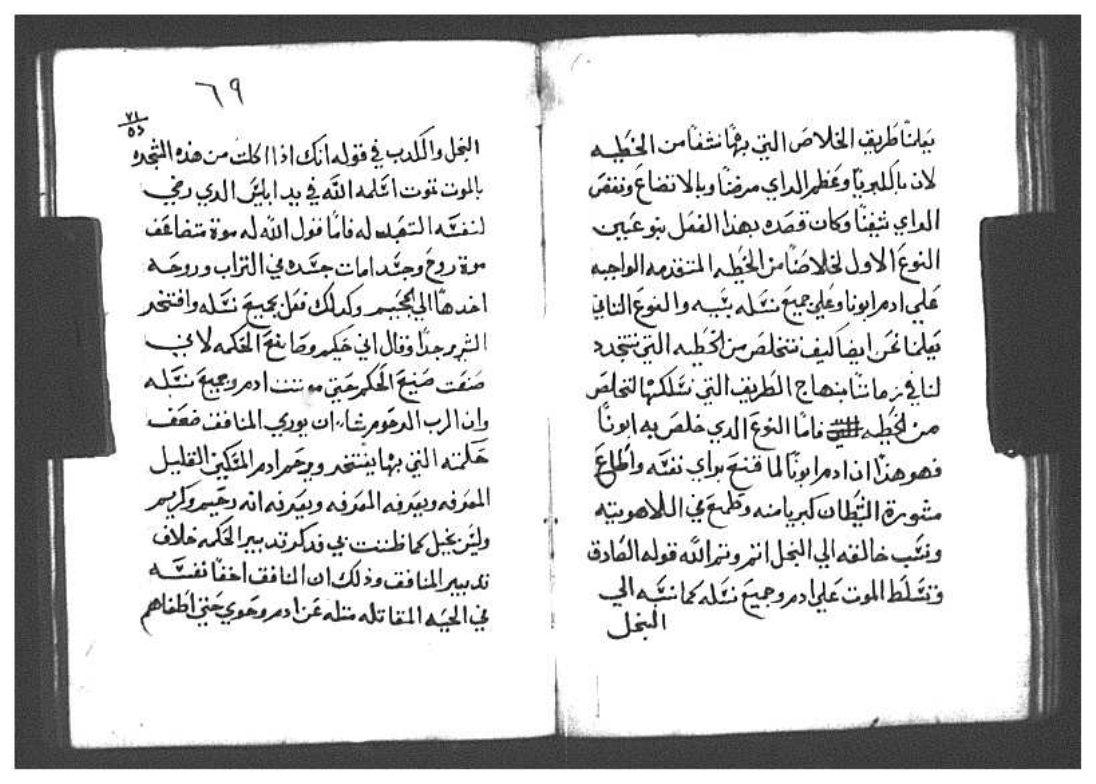 يعلنا طريق الخلاص التي بهما نشفا من الخطيه
لان بالكبريا وعظم الراي مرضنا وبالاتضاع ونقص
الراي شفينا وكان قصده بهذا الفعل بنوعين
النوع الاول لخلاصنا من الخطيه المتقدمه الواجبه
علي ادم ابونا وعلي جميع نسله بسببه والنوع الثاني
يعلمنا نحن ايضا كيف نتخلص من الخطيه التي تتجدد
لنا في زماننا بنهاج الطريق التي نسلكها لنخلص
من الخطيه فاما النوع الدي خلص به ابونا
فهو هذا ان ادم ابونا لما قنع براي نفسه واطاع
مشورة الشيطان كبريا منه وطمع في اللاهوتيه
ونسب خالقه الي البخل اتم وتم الله قوله الصادق
وتسلط الموت علي ادم وجميع نسله كما نسبه الي
البخل
٦٩
٧١
٥٥
البخل والكدب في قوله انك اذا اكلت من هذه الشجره
بالموت تموت اسلمه الله في يد ابليس الدي رضي
لنفسه التعبد له فاما قول الله له موة متضاعف
موة روح وجسد امات جسده في التراب وروحه
اخدها الي الجحيم وكدلك فعل بجميع نسله وافتخر
الشرير جدا وقال اني حكيم وصانع الحكمه لاني
صنعت صنيع الحكم حتي موتت ادم وجميع نسله
وان الرب الرحوم شاء ان يوري المنافق ضعف
حكمته التي بها يفتخر ويرحم ادم المسكين القليل
المعرفه ويعرفه المعرفه ويعرفه انه رحيم وكريم
وليس بخيل كما ظننت بي فدكر تدبير الحكمه خلاف
تدبير المنافق وذلك ان المنافق اخفا نفسه
في الحيه المقاتله مثله عن ادم وحوي حتي اطغاهم